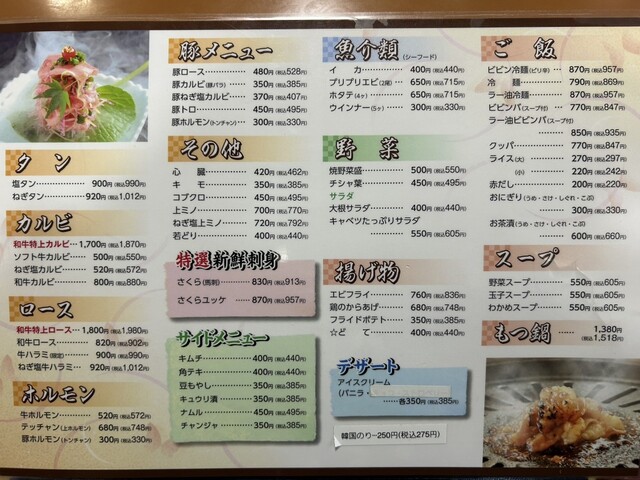 タン
塩タン………… 900円(税込990円)
ねぎタン………… 920円(税込1,012円)
カルビ
和牛特上カルビ… 1,700円(税込1,870円)
ソフト牛カルビ…… 500円(税込550円)
ねぎ塩カルビ…… 520円(税込572円)
和牛カルビ……… 800円(税込880円)
ロース
和牛特上ロース… 1,800円(税込1,980円)
和牛ロース……… 820円(税込902円)
牛ハラミ(限定)…… 900円(税込990円)
ねぎ牛ハラミ…… 920円(税込1,012円)
ホルモン
牛ホルモン……… 520円(税込572円)
テッチャン(上ホルモン) 680円(税込748円)
豚ホルモン(トンチャン) 300円(税込330円)
豚メニュー
豚ロース………… 480円(税込528円)
豚カルビ(豚バラ) 350円(税込385円)
豚ねぎ塩カルビ… 370円(税込407円)
豚トロ…………… 450円(税込495円)
豚ホルモン(トンチャン) 300円(税込330円)
その他
心 臓…………… 420円(税込462円)
キ モ…………… 350円(税込385円)
コブクロ………… 450円(税込495円)
上ミノ…………… 700円(税込770円)
ねぎ塩上ミノ…… 720円(税込792円)
若どり…………… 400円(税込440円)
特選新鮮刺身
さくら(馬刺)……… 830円(税込913円)
さくらユッケ……… 870円(税込957円)
サイドメニュー
キムチ…………… 400円(税込440円)
角テキ…………… 400円(税込440円)
豆もやし………… 350円(税込385円)
キュウリ漬……… 350円(税込385円)
ナムル…………… 450円(税込495円)
チャンジャ……… 350円(税込385円)
魚介類(シーフード)
イ カ…………… 400円(税込440円)
プリプリエビ(2尾) 650円(税込715円)
ホタテ(4ヶ)……… 650円(税込715円)
ウインナー(5ヶ)… 300円(税込330円)
野菜
焼野菜盛………… 500円(税込550円)
チシャ菜………… 450円(税込495円)
サラダ
大根サラダ……… 400円(税込440円)
キャベツたっぷりサラダ
…………… 550円(税込605円)
揚げ物
エビフライ……… 760円(税込836円)
鶏のからあげ…… 680円(税込748円)
フライドポテト…… 350円(税込385円)
☆どて…………… 400円(税込440円)
デザート
アイスクリーム
(バニラ・
……各350円(税込385円)
韓国のり…250円(税込275円)
ご飯
ビビン冷麺(ピリ辛) 870円(税込957円)
冷 麺…………… 790円(税込869円)
ラー油冷麺……… 870円(税込957円)
ビビンバ(スープ付) 770円(税込847円)
ラー油ビビンバ(スープ付)
…………… 850円(税込935円)
クッパ…………… 770円(税込847円)
ライス(大)……… 270円(税込297円)
(小)……… 220円(税込242円)
赤だし…………… 200円(税込220円)
おにぎり(うめ・さけ・しゃけ・こぶ)
…………… 300円(税込330円)
お茶漬(うめ・さけ・しゃけ・こぶ)
…………… 600円(税込660円)
スープ
野菜スープ……… 550円(税込605円)
玉子スープ……… 550円(税込605円)
わかめスープ…… 550円(税込605円)
もつ鍋 …… 1,380円
(税込1,518円)